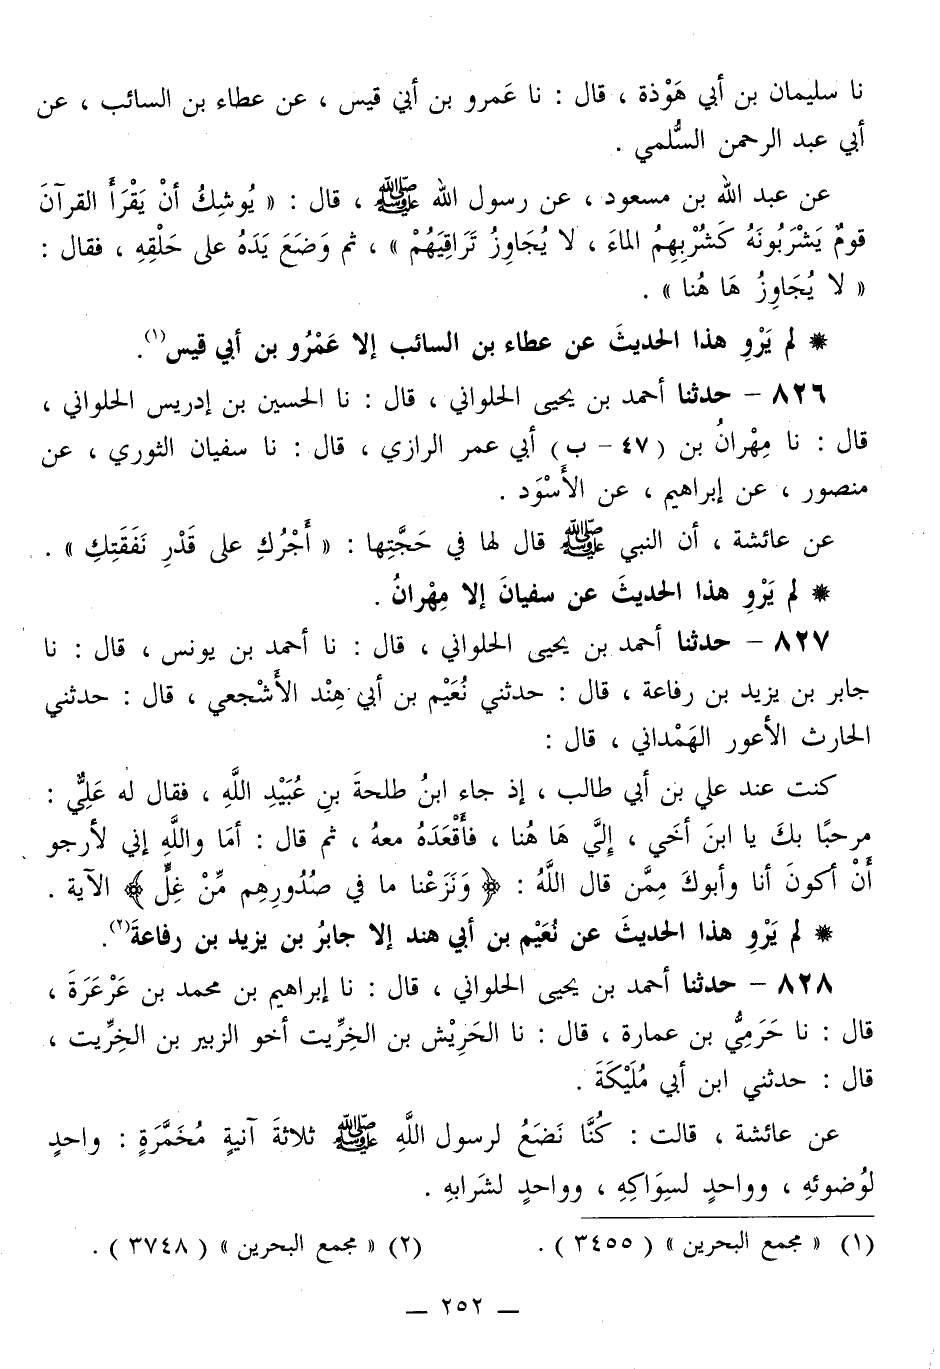 نا سليمان بن أبي هَوْذة ، قال : نا عَمرو بن أبي قيس ، عن عطاء بن السائب ، عن
أبي عبد الرحمن السُّلمي .
عن عبد الله بن مسعود ، عن رسول الله ﷺ ، قال : « يُوشِكُ أنْ يَقْرَأَ القرآنَ
قومٌ يَشْرَبُونَهُ كَشُرْبِهِمُ الماءَ ، لا يُجَاوِزُ تَرَاقِيَهُمْ » ، ثم وَضَعَ يَدَهُ على حَلْقِهِ ، فقال :
« لا يُجَاوِزُ هَا هُنا » .
* لم يَرْوِ هذا الحديثَ عن عطاء بن السائب إلا عَمْرُو بن أبي قيس(١).
٨٢٦ - حدثنا أحمد بن يحيى الحلواني ، قال : نا الحسين بن إدريس الحلواني ،
قال : نا مِهْرانُ بن (٤٧ - ب) أبي عمر الرازي ، قال : نا سفيان الثوري ، عن
منصور ، عن إبراهيم ، عن الأَسْوَد .
عن عائشة ، أن النبي ﷺ قال لها في حَجَّتِها : « أَجْرُكِ على قَدْرِ نَفَقَتِكِ » .
* لم يَرْوِ هذا الحديثَ عن سفيانَ إلا مِهْرانُ .
٨٢٧ - حدثنا أحمد بن يحيى الحلواني ، قال : نا أحمد بن يونس ، قال : نا
جابر بن يزيد بن رفاعة ، قال : حدثني نُعَيْم بن أبي هِنْد الأَشْجعي ، قال : حدثني
الحارث الأعور الهَمْداني ، قال :
كنت عند علي بن أبي طالب ، إذ جاء ابنُ طلحةَ بنِ عُبَيْدِ اللَّهِ ، فقال له عَلِيٌّ :
مرحبًا بكَ يا ابنَ أخَي ، إِلَيَّ هَا هُنا ، فأَقْعَدَهُ معهُ ، ثم قال : أمَا واللَّهِ إني لأرجو
أَنْ أكونَ أنا وأبوكَ مِمَّن قال اللَّهُ : ﴿ وَنَزَعْنا ما في صُدُورِهِم مِّنْ غِلٍّ ﴾ الآية .
* لم يَرْوِ هذا الحديثَ عن نُعَيْم بن أبي هند إلا جابرُ بن يزيد بن رفاعةَ(٢).
٨٢٨ - حدثنا أحمد بن يحيى الحلواني ، قال : نا إبراهيم بن محمد بن عَرْعَرَةَ ،
قال : نا حَرَمِيُّ بن عمارة ، قال : نا الحَرِيْش بن الخِرِّيت أخو الزبير بن الخِرِّيت ،
قال : حدثني ابن أبي مُلَيْكَةَ .
عن عائشة ، قالت : كُنَّا نَضَعُ لرسول اللَّهِ ﷺ ثلاثةَ آنيةٍ مُخَمَّرَةٍ : واحدٍ
لوُضوئهِ ، وواحدٍ لسِوَاكِهِ ، وواحدٍ لشَرابهِ .
(١) « مجمع البحرين » ( ٣٤٥٥ ) . (٢) « مجمع البحرين » ( ٣٧٤٨ ) .
— ٢٥٢ —